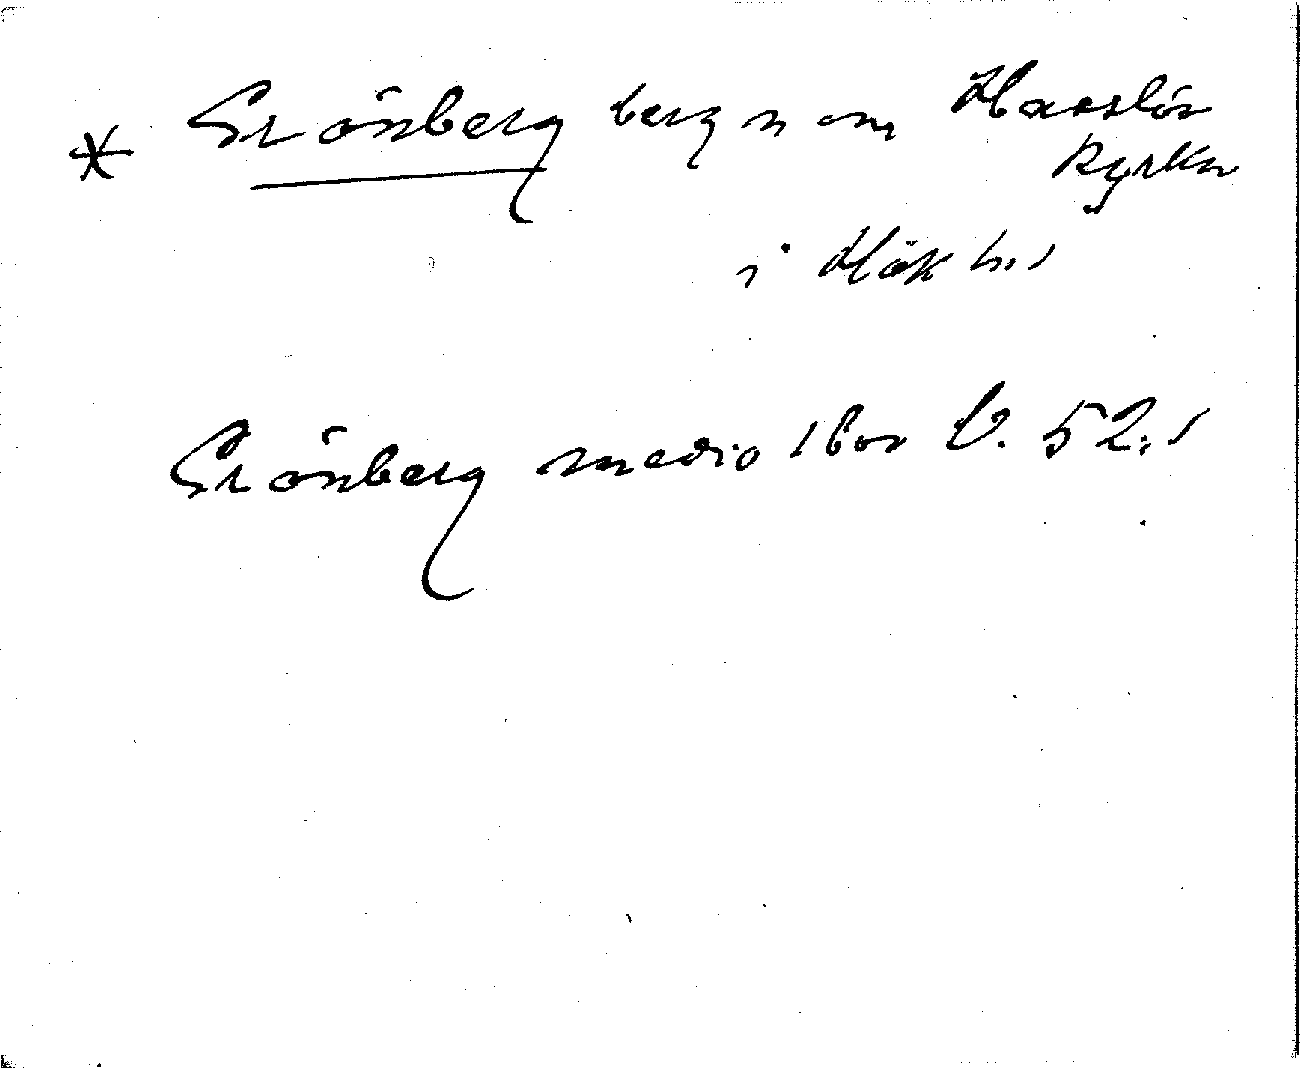 * Grönberg berg n om Hasslöv
kyrka
i Hök h:d
Grönberg medio 1600 V. 52:1